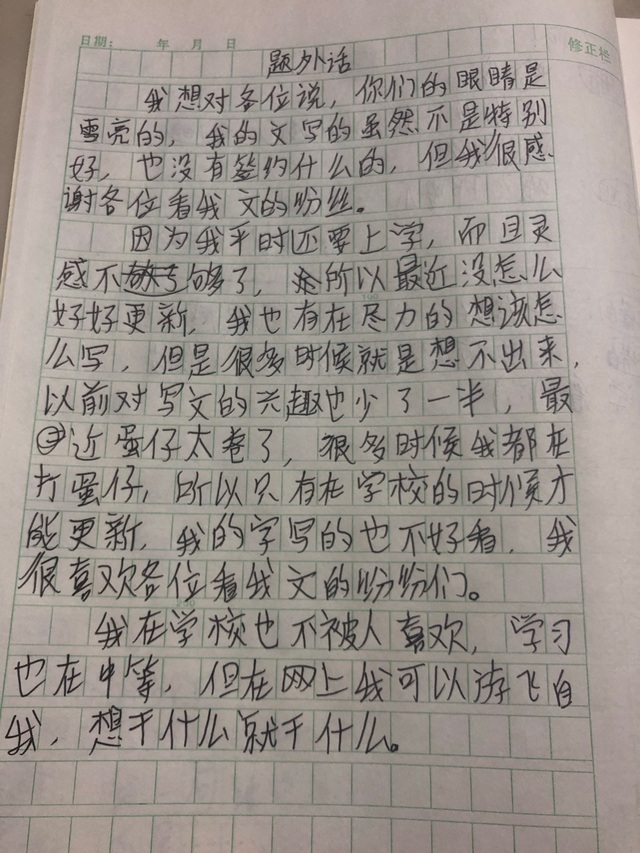 日期： 年 月 日
修正栏
题外话
我想对各位说，你们的眼睛是
雪亮的，我的文写的虽然不是特别
好，也没有签约什么的，但我很感
谢各位看我文的粉丝。
因为我平时还要上学，而且灵
感不够了，所以最近没怎么
好好更新，我也有在尽力的想该怎
么写，但是很多时候就是想不出来，
以前对写文的兴趣也少了一半，最
近蛋仔太卷了，很多时候我都在
打蛋仔，所以只有在学校的时候才
能更新，我的字写的也不好看，我
很喜欢各位看我文的纷纷们。
我在学校也不被人喜欢，学习
也在中等，但在网上我可以游飞自
我，想干什么就干什么。